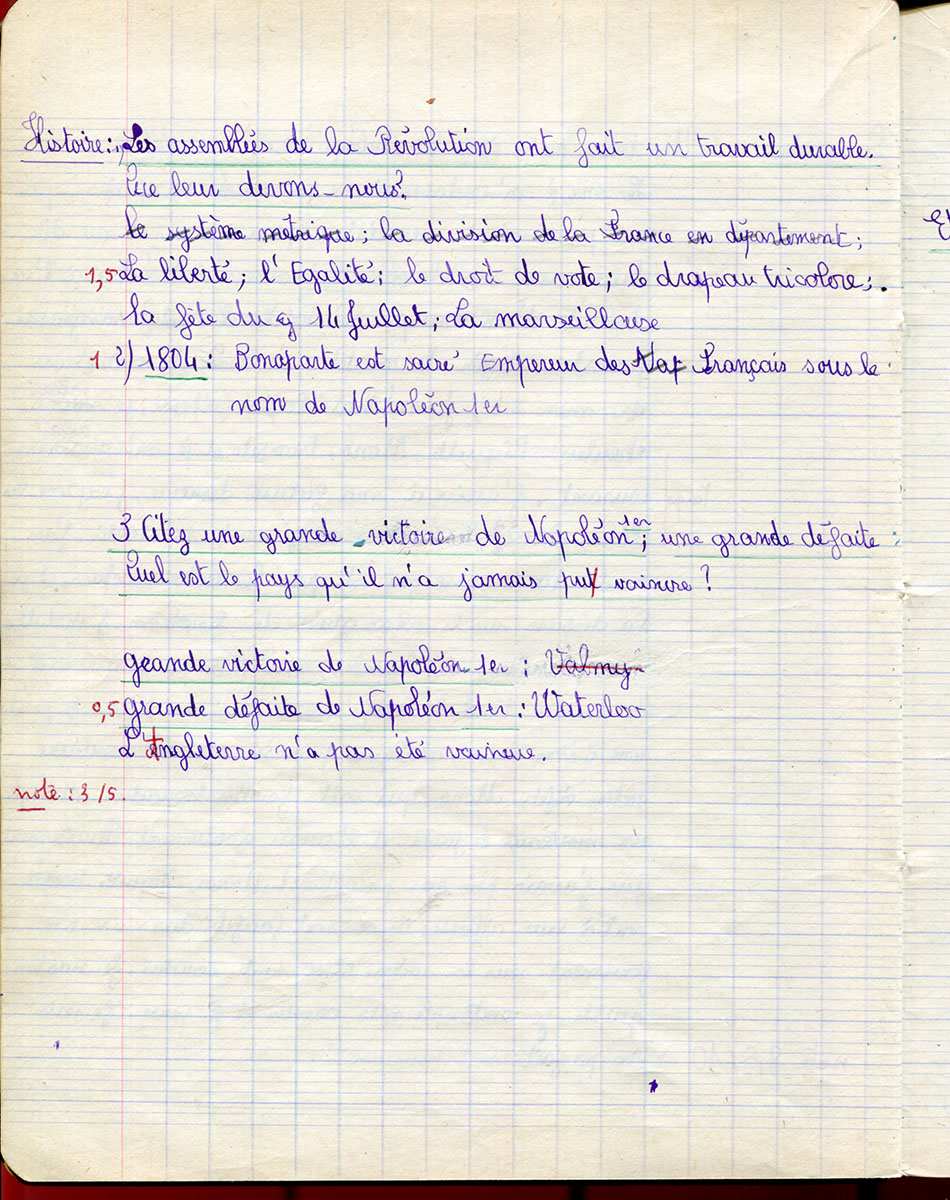 Histoire: 1, Les assemblées de la Révolution ont fait un travail durable.
Que leur devons-nous?
le système métrique; la division de la France en département;
1,5 La liberté; l'Egalité; le droit de vote; le drapeau tricolore;.
la fête du 14 Juillet; La marseillause
1 2) 1804: Bonaparte est sacré Empereur des Français sous le
nom de Napoléon 1er
3 Citez une grande victoire de Napoléon 1er; une grande défaite:
Quel est le pays qu'il n'a jamais put vaincre?
geande victoire de Napoléon 1er: Valmy
0,5 grande défaite de Napoléon 1er: Waterloo
L'Angleterre n'a pas été vaincue.
note: 3/5.